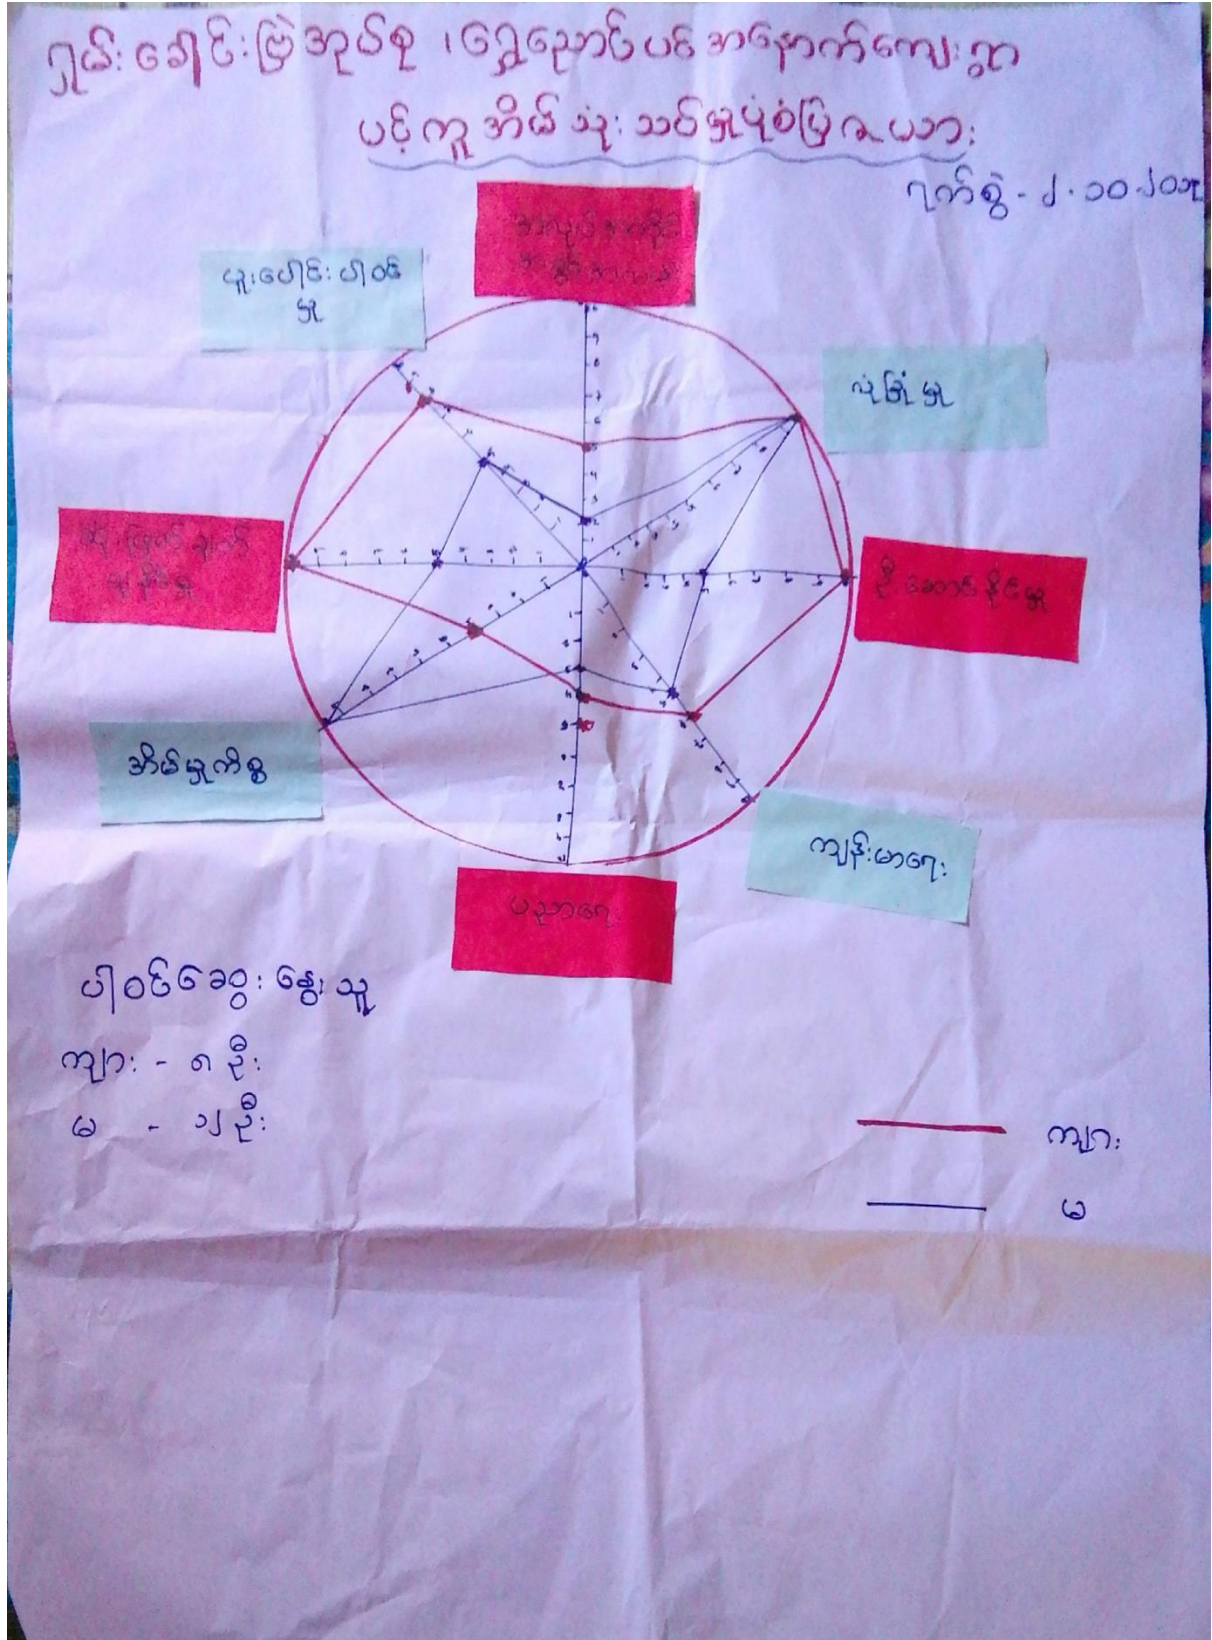 ရှမ်းခေါင်းဗြဲအုပ်စု ၊ ရွှေညောင်ပင်အနောက်ကျေးရွာ
ပင့်ကူအိမ်သုံးသပ်မှုပုံစံပြဇယား
ရက်စွဲ - ၂.၁၀.၂၀၁
အလုပ်အကိုင်
အခွင့်အလမ်း
ပူးပေါင်းပါဝင်
မှု
လုံခြုံမှု
ဆုံးဖြတ်ချက်
ချနိုင်မှု
ဦးဆောင်နိုင်မှု
အိမ်မှုကိစ္စ
ကျန်းမာရေး
ပညာရေး
ပါဝင်ဆွေးနွေးသူ
ကျား - ၈ ဦး
မ - ၁၂ ဦး
ကျား
မ